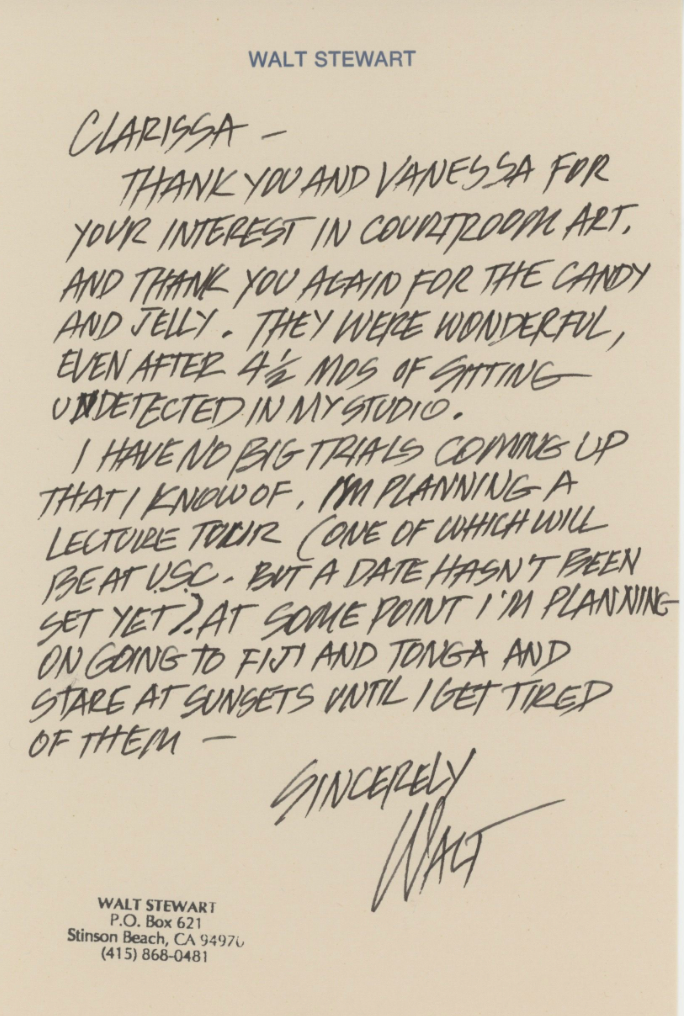 WALT STEWART
CLARISSA —
THANK YOU AND VANESSA FOR
YOUR INTEREST IN COURTROOM ART.
AND THANK YOU AGAIN FOR THE CANDY
AND JELLY. THEY WERE WONDERFUL,
EVEN AFTER 4½ MOS OF SITTING
UNDETECTED IN MY STUDIO.
I HAVE NO BIG TRIALS COMING UP
THAT I KNOW OF. I'M PLANNING A
LECTURE TOUR (ONE OF WHICH WILL
BE AT USC. BUT A DATE HASN'T BEEN
SET YET). AT SOME POINT I'M PLANNING
ON GOING TO FIJI AND TONGA AND
STARE AT SUNSETS UNTIL I GET TIRED
OF THEM —
SINCERELY
WALT
WALT STEWART
P.O. Box 621
Stinson Beach, CA 94970
(415) 868-0481